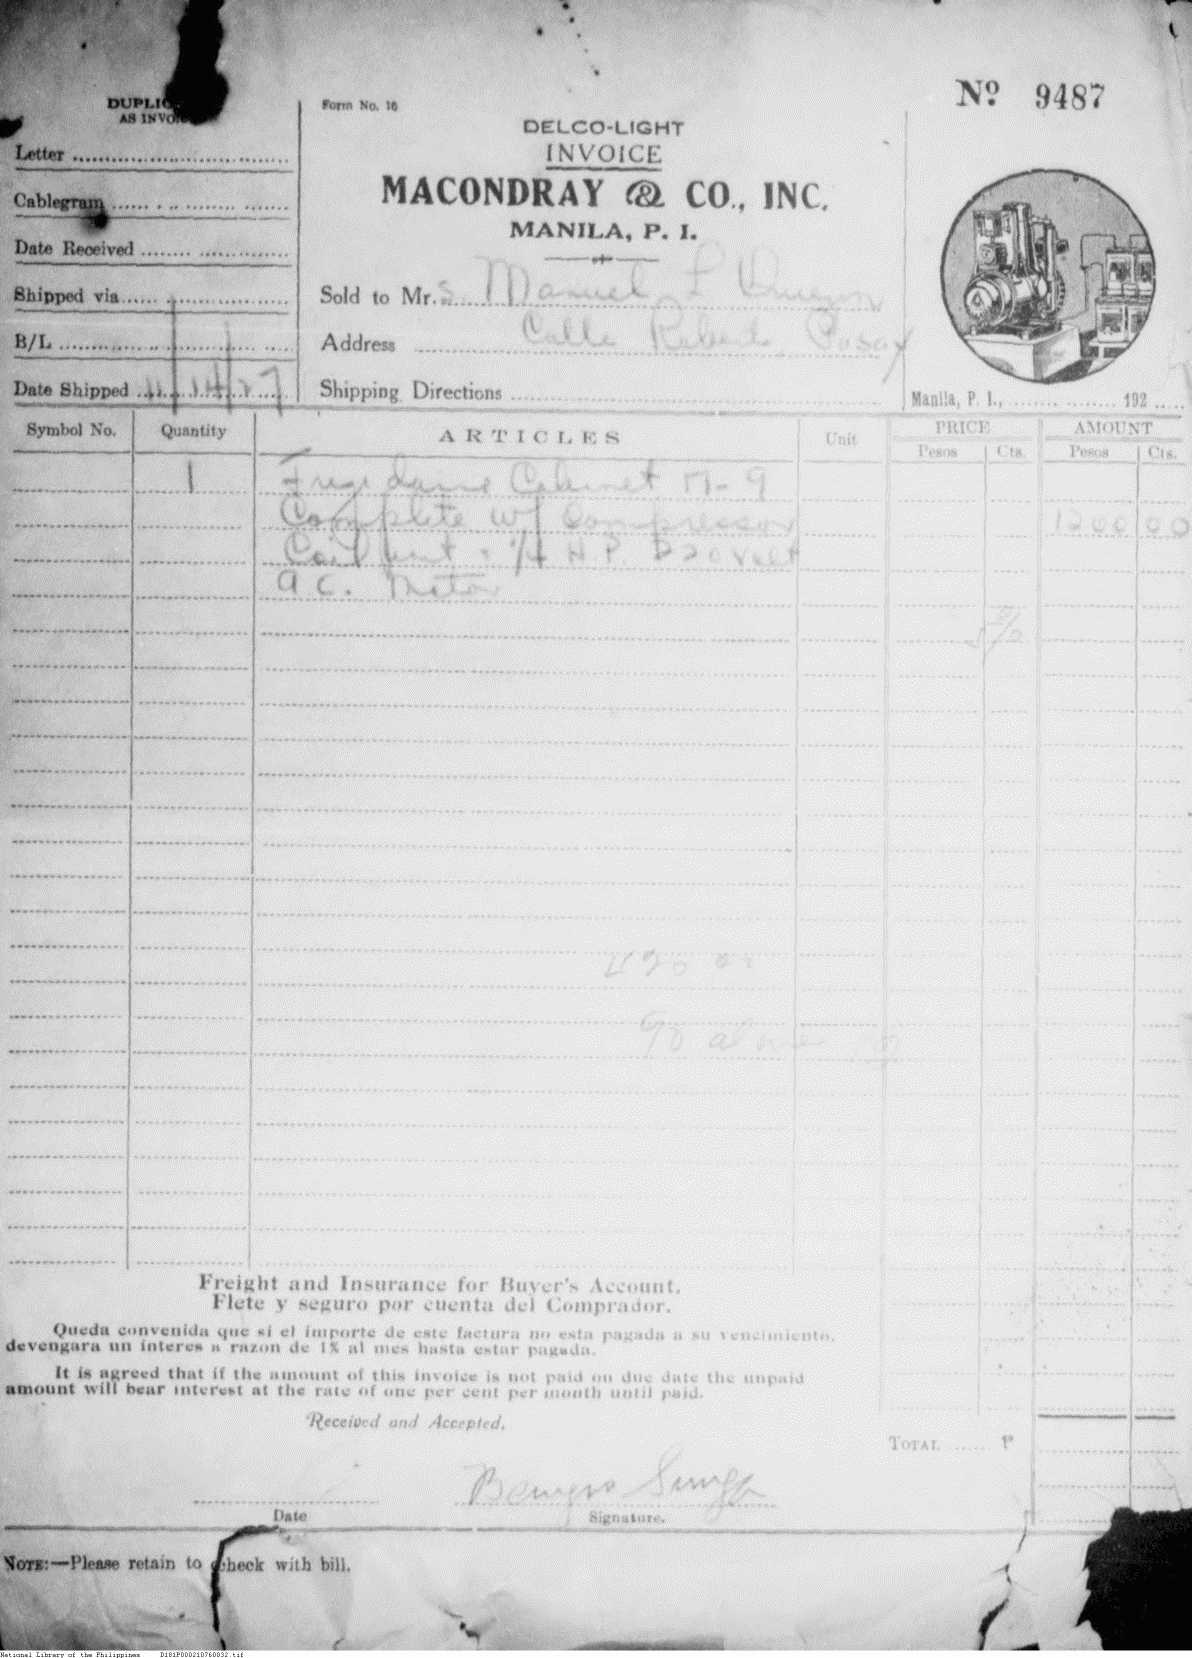 AS INVOI
Letter
Cablegram
Date Received
Shipped via
B/L
Date Shipped 11/14/27
Form No. 16
DELCO-LIGHT
INVOICE
MACONDRAY & CO., INC.
MANILA, P. I.
Sold to Mrs Manuel L
Address Calle Pasay
Shipping Directions
Nº 9487
Manila, P. I., 192
Symbol No. Quantity ARTICLES Unit PRICE AMOUNT
Pesos Cts. Pesos Cts.
1 Frigidaire Cabinet M-9
Complete w/ Compressor 1200 00
Coil unit 1/4 H.P. 220 volt
A C. Motor
Freight and Insurance for Buyer's Account.
Flete y seguro por cuenta del Comprador.
Queda convenida que si el importe de este factura no esta pagada a su vencimiento,
devengara un interes a razon de 1% al mes hasta estar pagada.
It is agreed that if the amount of this invoice is not paid on due date the unpaid
amount will bear interest at the rate of one per cent per month until paid.
Received and Accepted.
TOTAL ₱
Date
Signature.
NOTE:—Please retain to check with bill.
National Library of the Philippines D181P000210760032.tif